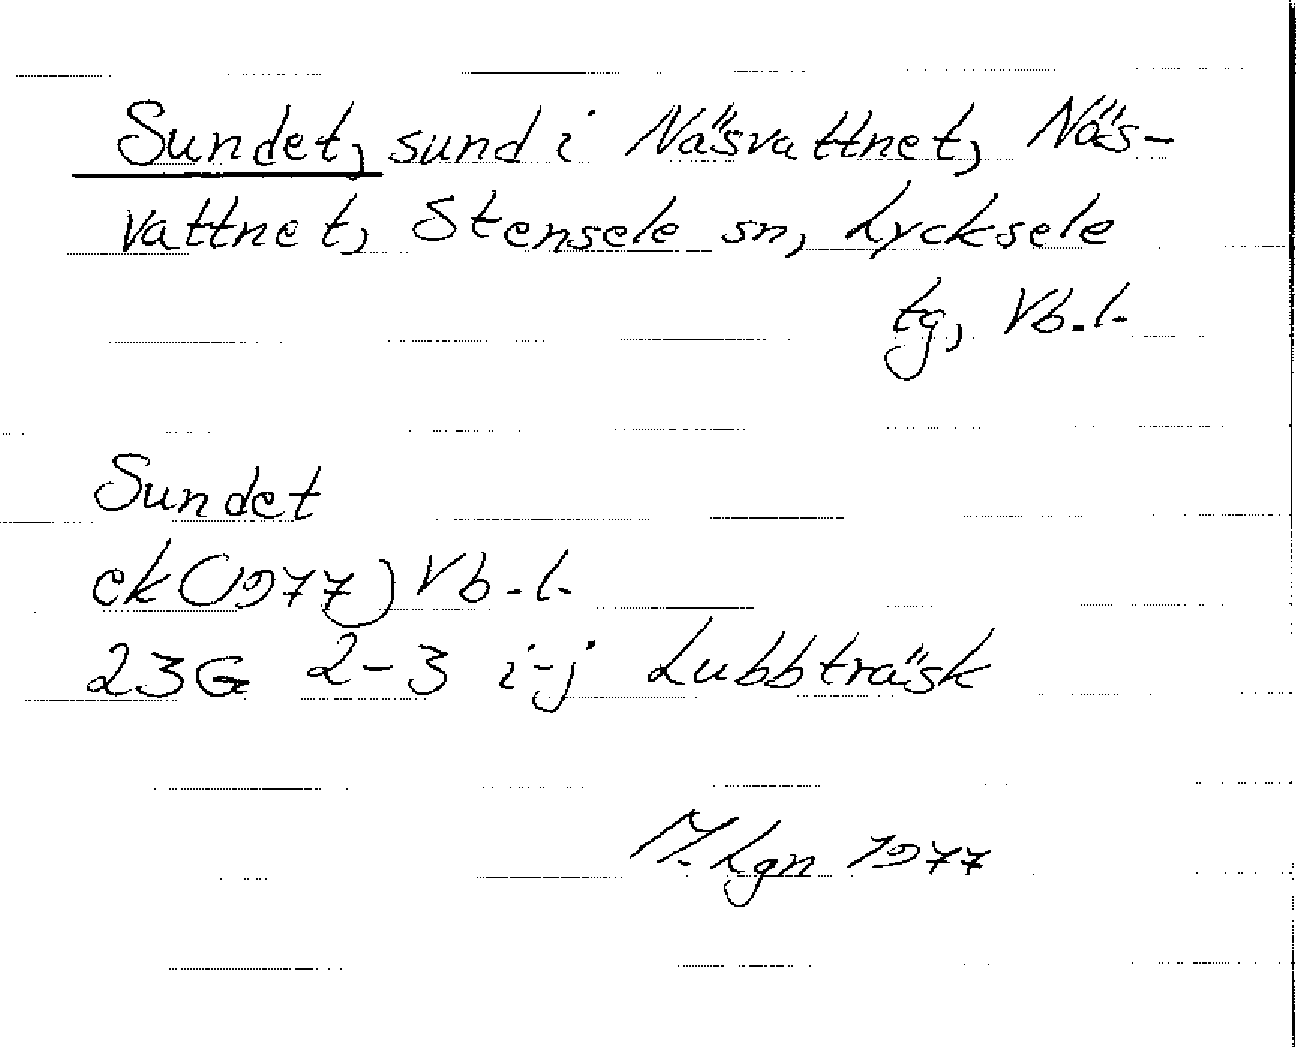 Sundet, sund i Näsvattnet, Näs-
vattnet, Stensele sn, Lycksele
tg, Vb.l.
Sundet
ek (1977) Vb.l.
23G 2-3 i-j Lubbträsk
M. Lgn 1977